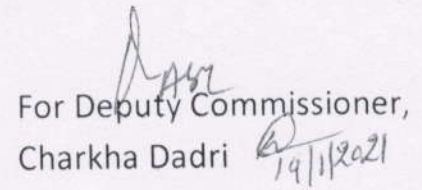 For Deputy Commissioner,
Charkha Dadri
19/1/2021